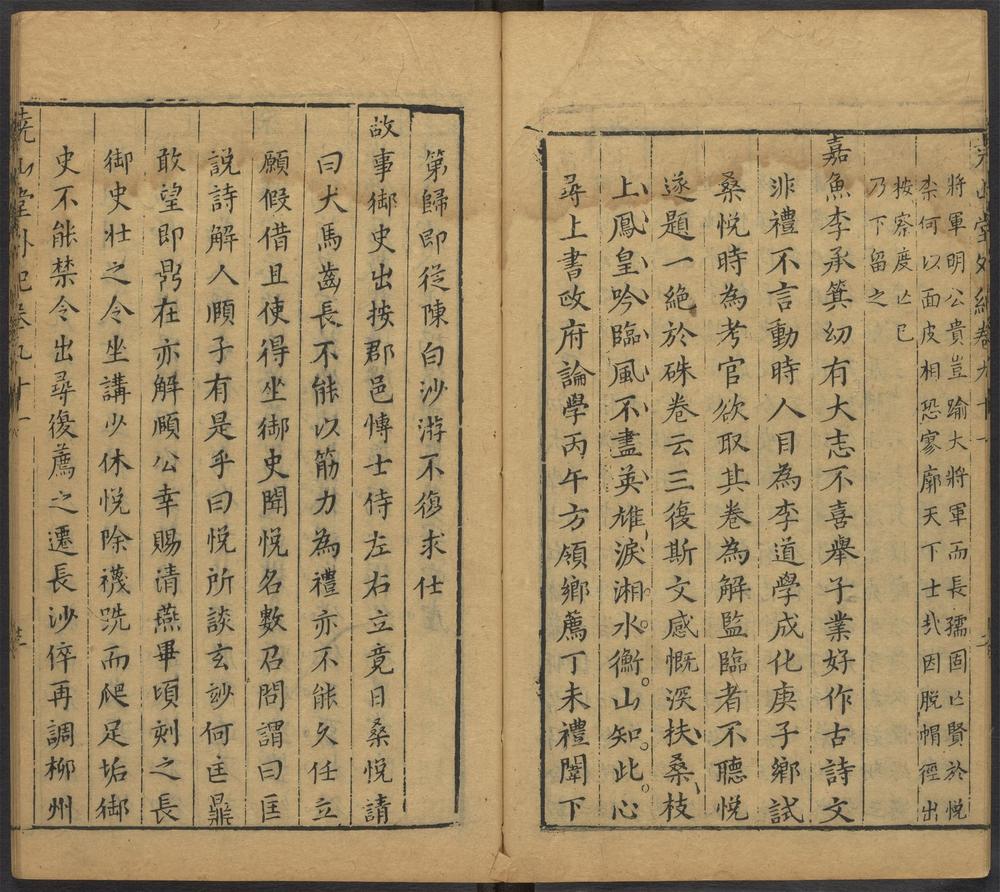 將軍明公貴豈踰大將軍而長孺固亡賢於悅
柰何以面皮相恐寥廓天下士哉因脫帽徑出
按察度亡已
乃下留之
嘉魚李承箕幼有大志不喜舉子業好作古詩文
非禮不言動時人目為李道學成化庚子鄉試
桑悅時為考官欲取其卷為解監臨者不聽悅
遂題一絕於硃卷云三復斯文感慨深扶桑枝
上鳳皇吟臨風不盡英雄淚湘水衡山知此心
尋上書政府論學丙午方領鄉薦丁未禮闈下
第歸即從陳白沙游不復求仕
故事御史出按郡邑博士侍左右立竟日桑悅請
曰犬馬齒長不能以筋力為禮亦不能久任立
願假借且使得坐御史聞悅名數召問謂曰匡
說詩解人頤子有是乎曰悅所談玄玅何匡鼎
敢望即鼎在亦解頤公幸賜清燕畢頃刻之長
御史壯之令坐講少休悅除襪跣而爬足垢御
史不能禁令出尋復薦之遷長沙倅再調柳州
堯山堂外紀卷九十一